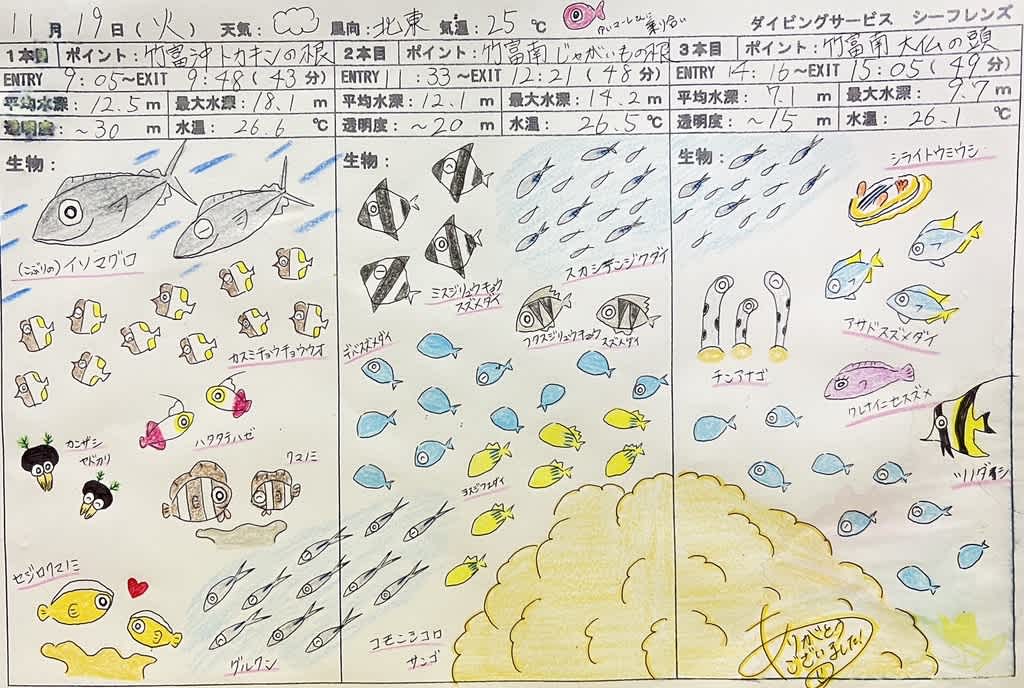 11月19日(火) 天気: 風向:北東 気温:25℃ ダイビングサービス シーフレンズ
1本目 ポイント:竹富沖トカキンの根 2本目 ポイント:竹富南じゃがいもの根 3本目 ポイント:竹富南大仏の頭
ENTRY 9:05~EXIT 9:48(43分) ENTRY 11:33~EXIT 12:21(48分) ENTRY 14:16~EXIT 15:05(49分)
平均水深:12.5m 最大水深:18.1m 平均水深:12.1m 最大水深:14.2m 平均水深:7.1m 最大水深:9.7m
透明度:~30m 水温:26.6℃ 透明度:~20m 水温:26.5℃ 透明度:~15m 水温:26.1℃
生物:
(こぶりの)イソマグロ
カスミチョウチョウウオ
ハタタテハゼ
カンザシ
ヤドカリ
クマノミ
セジロクマノミ
グルクン
生物:
ミスジリュウキュウ
スズメダイ
スカシテンジクダイ
フタスジリュウキュウ
スズメダイ
デバスズメダイ
ヨスジフエダイ
コモンシコロ
サンゴ
生物:
シライトウミウシ
アサドスズメダイ
チンアナゴ
クレナイニセスズメ
ツノダシ
ありがとう
ございました!